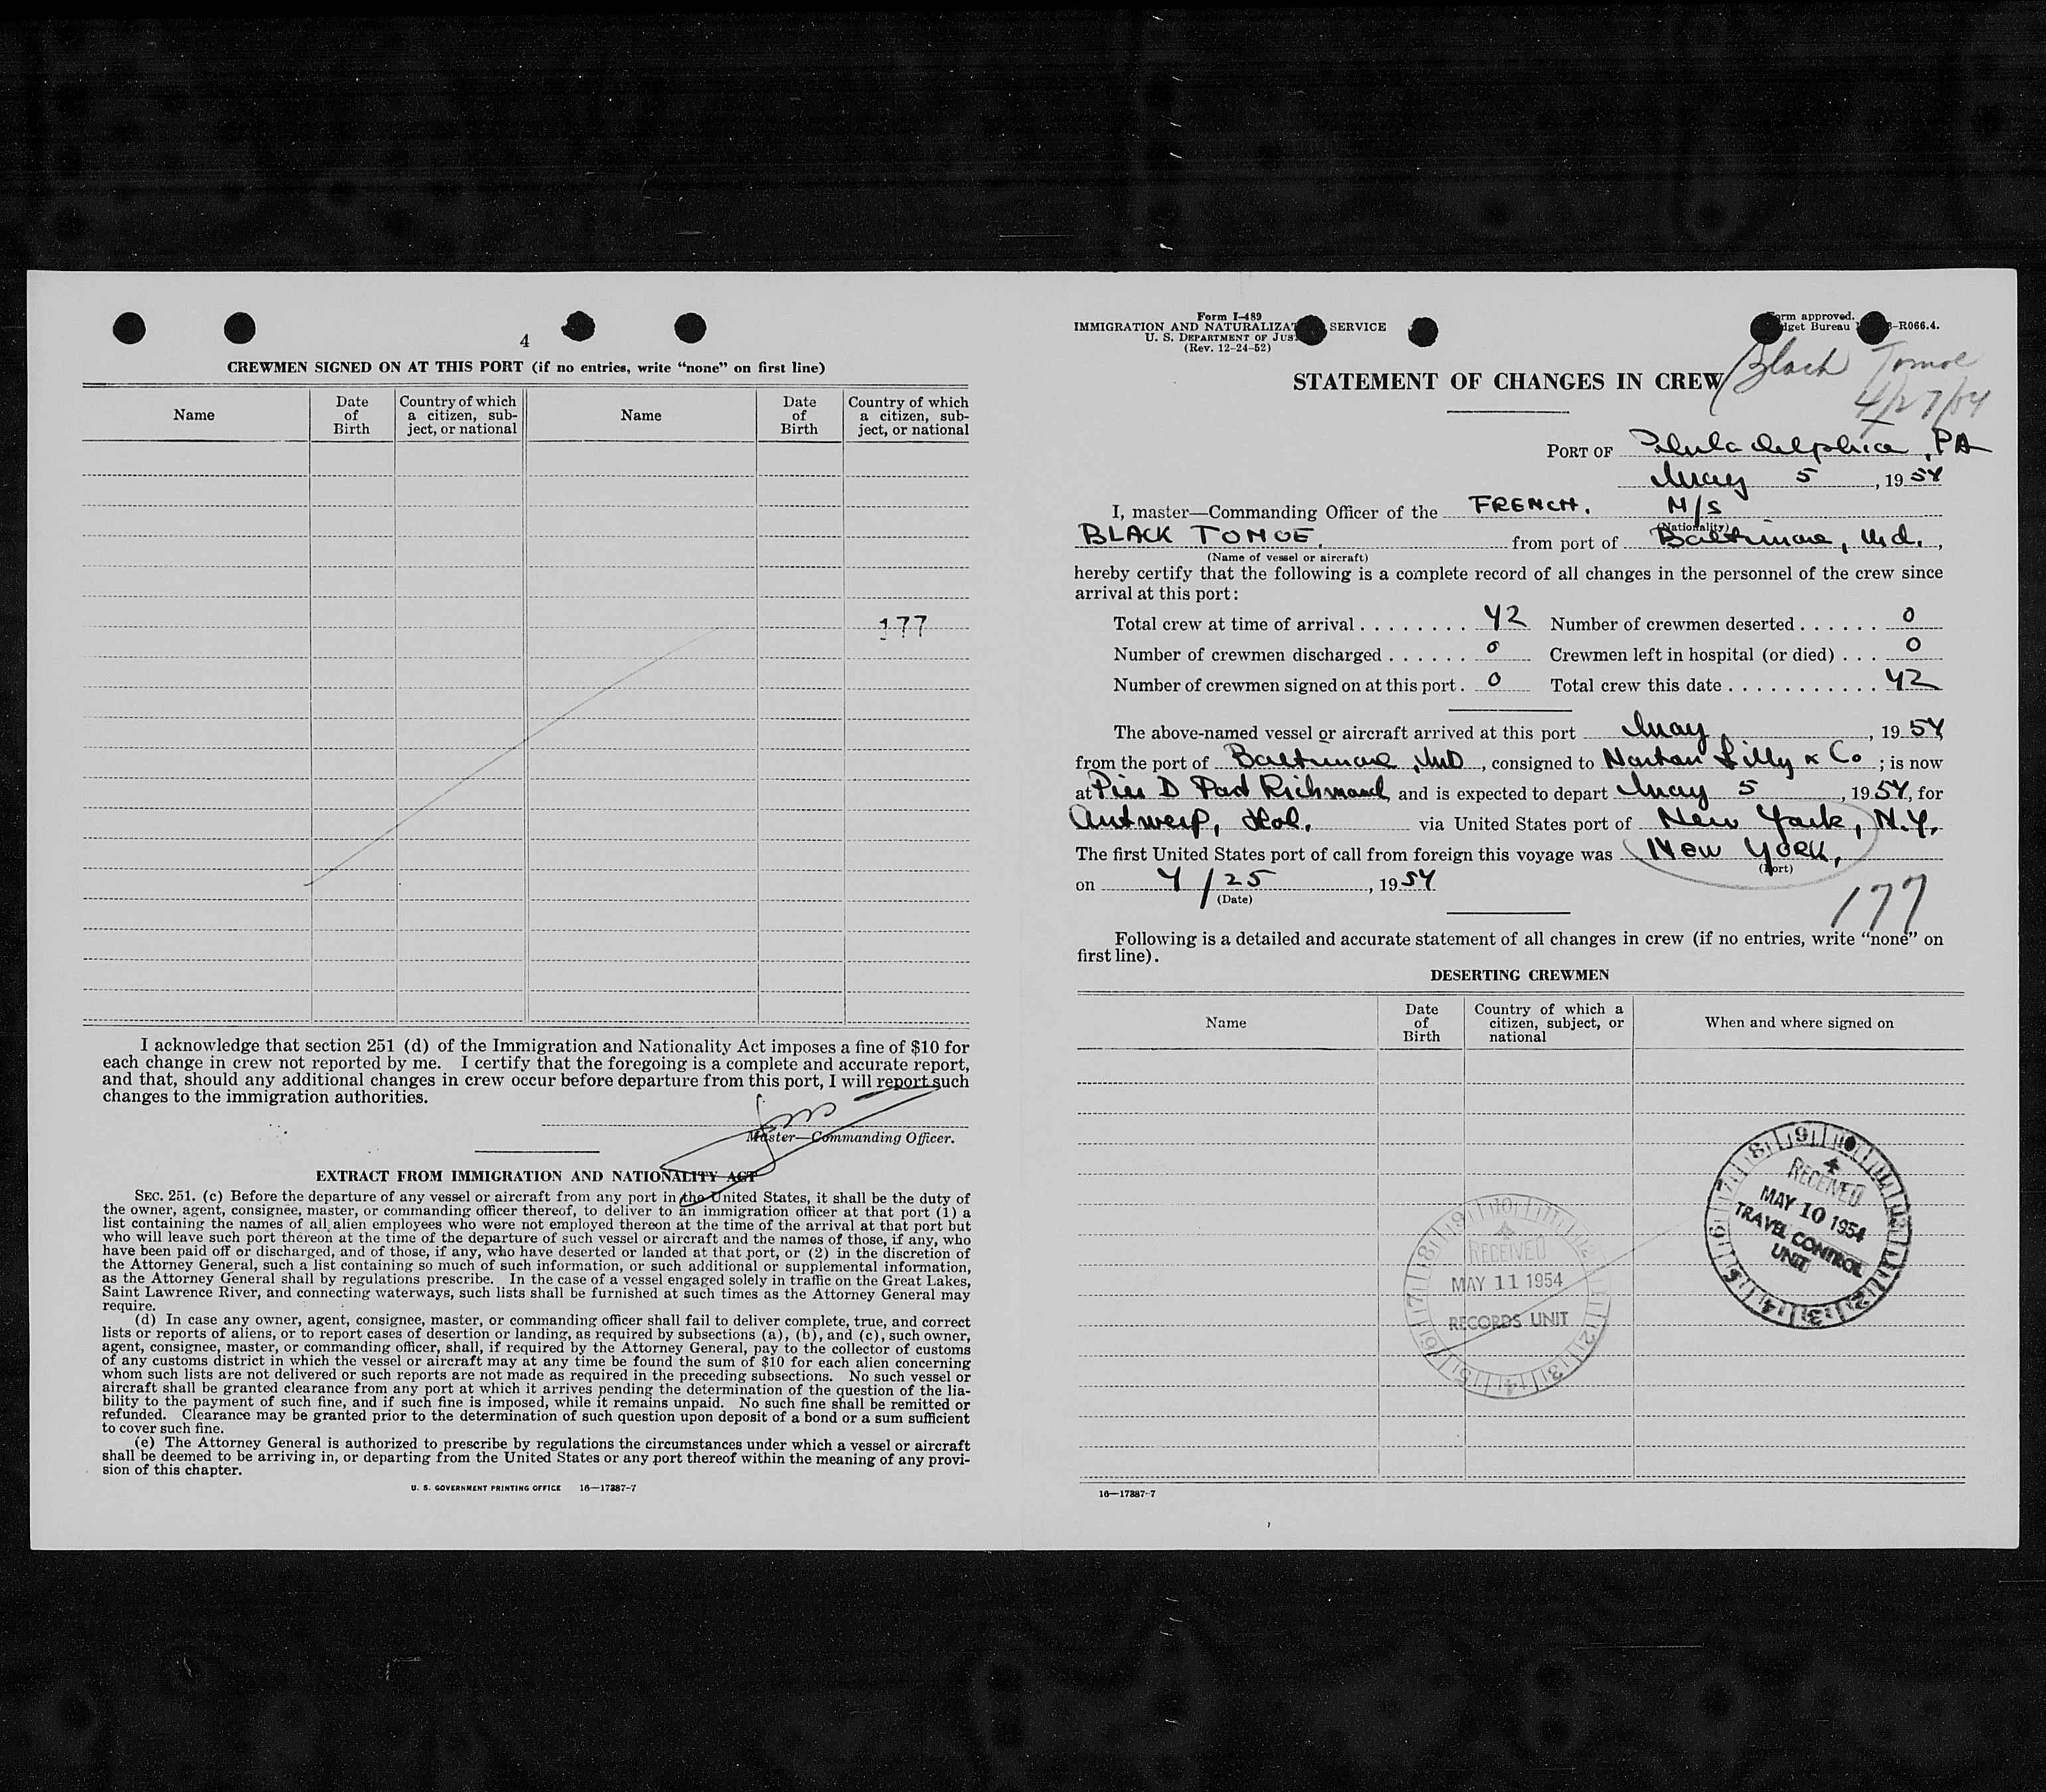 4
CREWMEN SIGNED ON AT THIS PORT (if no entries, write “none” on first line)
Name
Date of Birth
Country of which a citizen, sub-ject, or national
Name
Date of Birth
Country of which a citizen, sub-ject, or national
177
I acknowledge that section 251 (d) of the Immigration and Nationality Act imposes a fine of $10 for
each change in crew not reported by me. I certify that the foregoing is a complete and accurate report,
and that, should any additional changes in crew occur before departure from this port, I will report such
changes to the immigration authorities.
Master—Commanding Officer.
EXTRACT FROM IMMIGRATION AND NATIONALITY ACT
SEC. 251. (c) Before the departure of any vessel or aircraft from any port in the United States, it shall be the duty of
the owner, agent, consignee, master, or commanding officer thereof, to deliver to an immigration officer at that port (1) a
list containing the names of all alien employees who were not employed thereon at the time of the arrival at that port but
who will leave such port thereon at the time of the departure of such vessel or aircraft and the names of those, if any, who
have been paid off or discharged, and of those, if any, who have deserted or landed at that port, or (2) in the discretion of
the Attorney General, such a list containing so much of such information, or such additional or supplemental information,
as the Attorney General shall by regulations prescribe. In the case of a vessel engaged solely in traffic on the Great Lakes,
Saint Lawrence River, and connecting waterways, such lists shall be furnished at such times as the Attorney General may
require.
(d) In case any owner, agent, consignee, master, or commanding officer shall fail to deliver complete, true, and correct
lists or reports of aliens, or to report cases of desertion or landing, as required by subsections (a), (b), and (c), such owner,
agent, consignee, master, or commanding officer, shall, if required by the Attorney General, pay to the collector of customs
of any customs district in which the vessel or aircraft may at any time be found the sum of $10 for each alien concerning
whom such lists are not delivered or such reports are not made as required in the preceding subsections. No such vessel or
aircraft shall be granted clearance from any port at which it arrives pending the determination of the question of the lia-
bility to the payment of such fine, and if such fine is imposed, while it remains unpaid. No such fine shall be remitted or
refunded. Clearance may be granted prior to the determination of such question upon deposit of a bond or a sum sufficient
to cover such fine.
(e) The Attorney General is authorized to prescribe by regulations the circumstances under which a vessel or aircraft
shall be deemed to be arriving in, or departing from the United States or any port thereof within the meaning of any provi-
sion of this chapter.
U. S. GOVERNMENT PRINTING OFFICE 16—17387-7
Form I-489
IMMIGRATION AND NATURALIZA SERVICE
U. S. DEPARTMENT OF JUS
(Rev. 12-24-52)
orm approved.
dget Bureau -R066.4.
Black Tomoe
4/27/54
STATEMENT OF CHANGES IN CREW
PORT OF Philadelphia, PA
May 5, 1954
I, master—Commanding Officer of the FRENCH. M/S
(Nationality)
BLACK TOMOE. from port of Baltimore, Md.,
(Name of vessel or aircraft)
hereby certify that the following is a complete record of all changes in the personnel of the crew since
arrival at this port:
Total crew at time of arrival . . . . . . . . 42 Number of crewmen deserted . . . . . . 0
Number of crewmen discharged . . . . . . 0 Crewmen left in hospital (or died) . . . 0
Number of crewmen signed on at this port . 0 Total crew this date . . . . . . . . . . . 42
The above-named vessel or aircraft arrived at this port May, 1954
from the port of Baltimore, MD, consigned to Norton Lilly & Co; is now
at Pier D Port Richmond and is expected to depart May 5, 1954, for
Antwerp, Hol. via United States port of New York, N.Y.
The first United States port of call from foreign this voyage was New YORK,
(Port)
on 4/25, 1954
(Date)
177
Following is a detailed and accurate statement of all changes in crew (if no entries, write “none” on
first line).
DESERTING CREWMEN
Name
Date of Birth
Country of which a citizen, subject, or national
When and where signed on
RECEIVED
MAY 10 1954
TRAVEL CONTROL
UNIT
RECEIVED
MAY 11 1954
RECORDS UNIT
16—17387-7